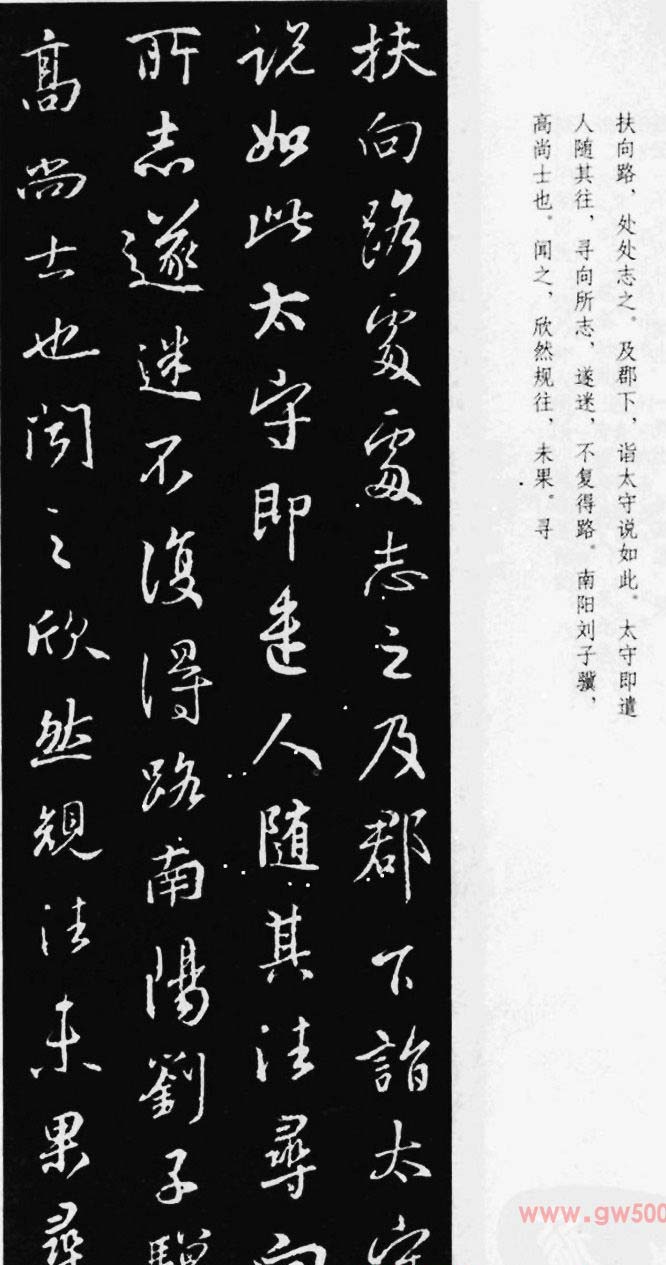 扶向路處處志之及郡下詣太守
說如此太守即遣人随其往尋向
所志遂迷不復得路南陽劉子驥
髙尚士也聞之欣然規往未果尋
扶向路，处处志之。及郡下，诣太守说如此。太守即遣
人随其往，寻向所志，遂迷，不复得路。南阳刘子骥，
高尚士也。闻之，欣然规往，未果。寻
www.gw500